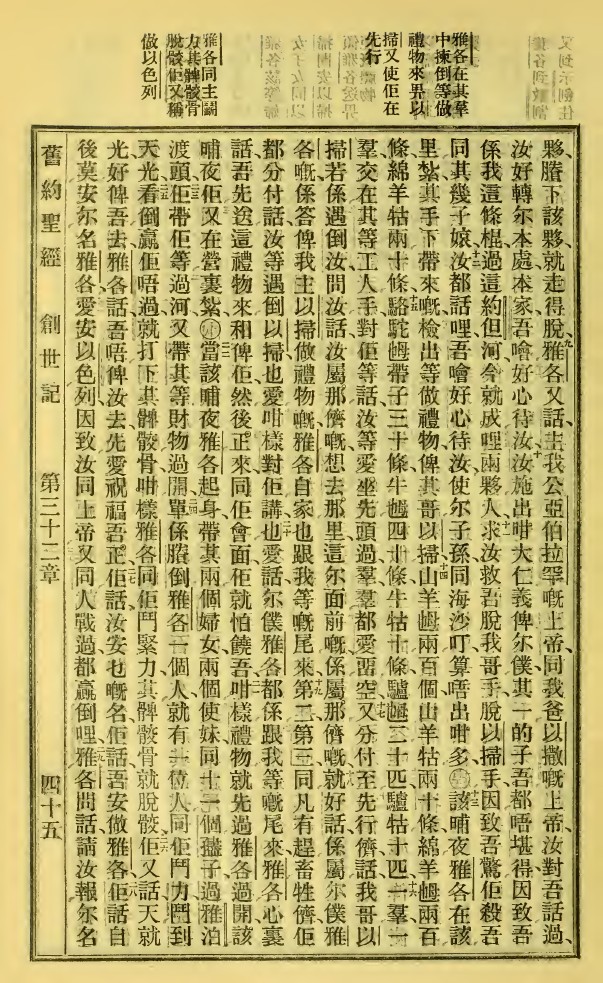 雅各在其草
中揀倒等做
禮物來畀以
掃又使佢在
先行
雅各同主鬭
力其髀骸骨
脫骸佢又稱
做以色列
夥賸下該夥就走得脫雅各又話主我公亞伯拉罕嘅上帝同我爸以撒嘅上帝汝對吾話過
汝好轉尔本處本家吾噲好心待汝汝施出咁大仁義俾尔僕其一的子吾都唔堪得因致吾
係我這條棍過這約但河今就成哩兩夥人求汝救吾脫我哥手脫以掃手因致吾驚佢殺吾
同其幾子娘汝都話哩吾噲好心待汝使尔子孫同海沙叮算唔出咁多該晡夜雅各在該
里紮其手下帶來嘅檢出等做禮物俾其哥以掃山羊𡜵兩百個山羊牯兩十條綿羊𡜵兩百
條綿羊牯兩十條駱駝𡜵帶子三十條牛𡜵四十條牛牯十條驢𡜵二十匹驢牯十匹一羣一
羣交在其等工人手對佢等話汝等愛坐先頭過羣羣都愛畱空又分付至先行儕話我哥以
掃若係遇倒汝問汝話汝屬那儕嘅想去那里這尔面前嘅係屬那儕嘅就好話係屬尔僕雅
各嘅係答俾我主以掃做禮物嘅雅各自家也跟我等嘅尾來第二第三同凡有趕畜牲儕佢
都分付話汝等遇倒以掃也愛咁樣對佢講也愛話尔僕雅各都係跟我等嘅尾來雅各心裏
話吾先送這禮物來和俾佢然後正來同佢會面佢就怕饒吾咁樣禮物就先過雅各過開該
晡夜佢又在營裏紮當該晡夜雅各起身帶其兩個婦女兩個使妹同十一個𤘅子過雅泊
渡頭佢帶佢等過河又帶其等財物過開單係賸倒雅各一個人就有一位人同佢鬥力鬥到
天光看倒贏佢唔過就打下其髀骸骨咁樣雅各同佢鬥緊力其髀骸骨就脫骸佢又話天就
光好俾吾去雅各話吾唔俾汝去先愛祝福吾正佢話汝安乜嘅名佢話吾安做雅各佢話自
後莫安尔名雅各愛安以色列因致汝同上帝又同人戰過都贏倒哩雅各問話請汝報尔名
舊約聖經 創世記 第三十二章 四十五